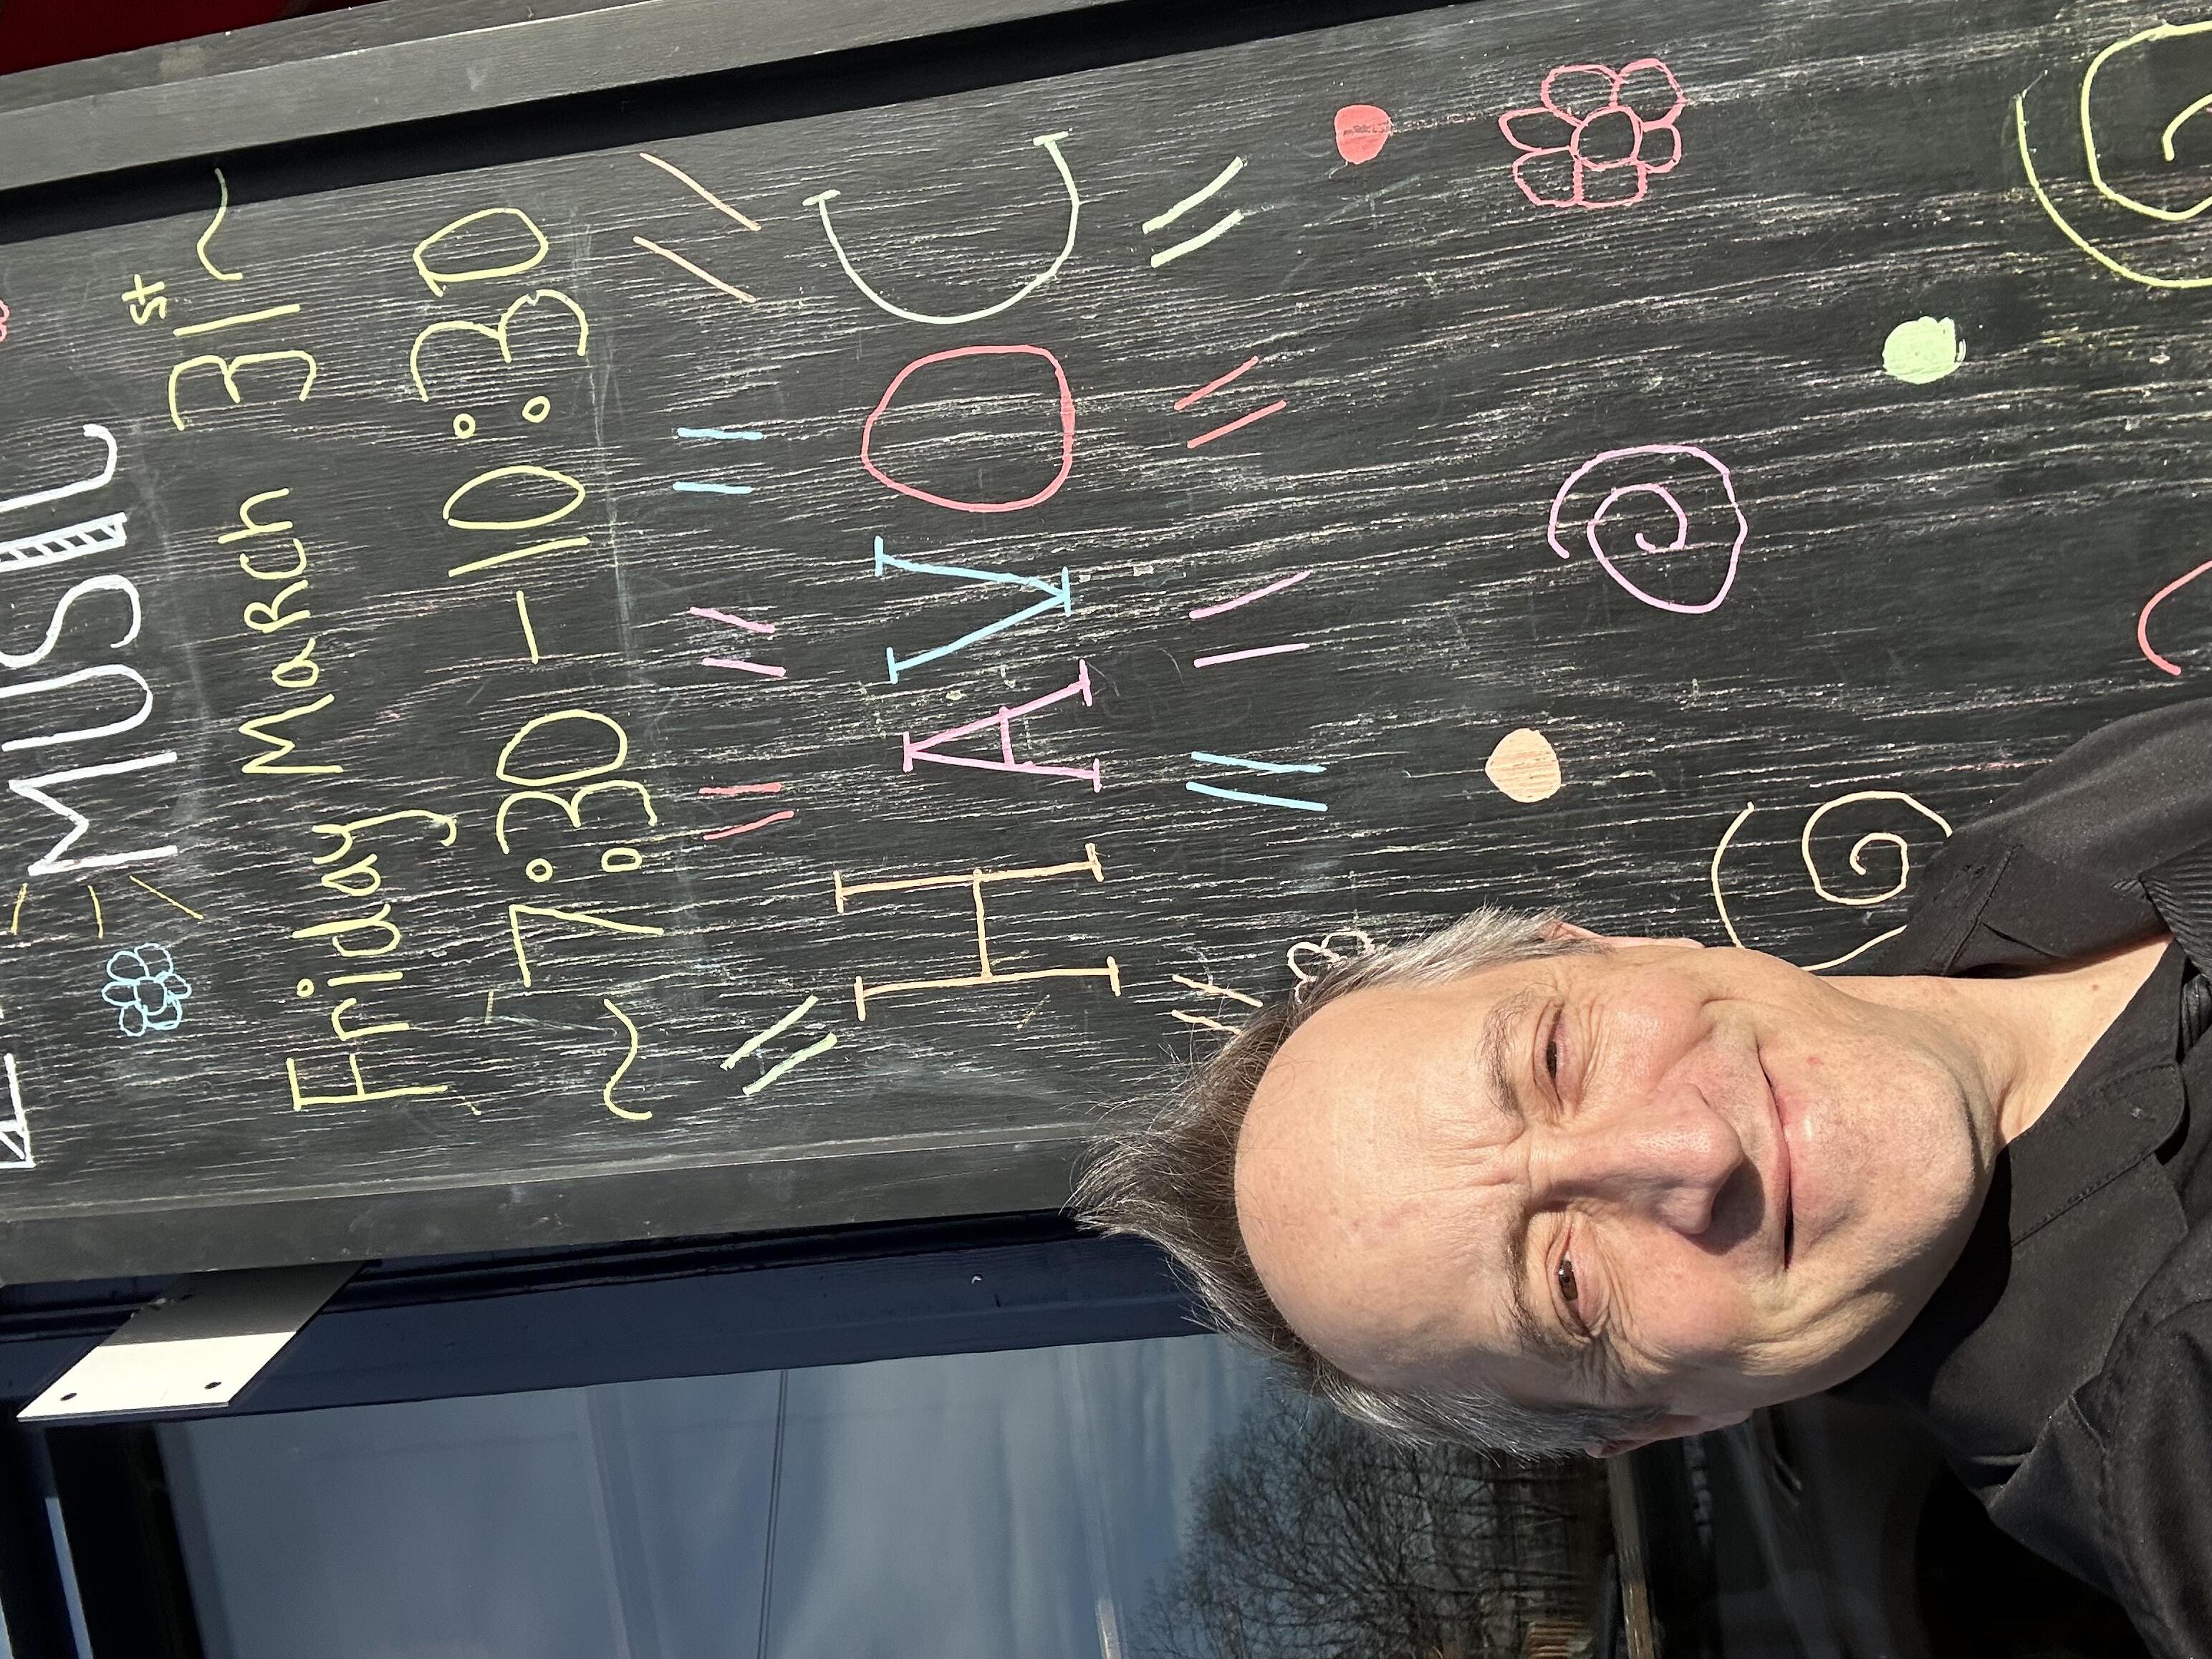 MUSIC
Friday MaRCh 31st ~
~ 7:30 - 10:30
HAVOC